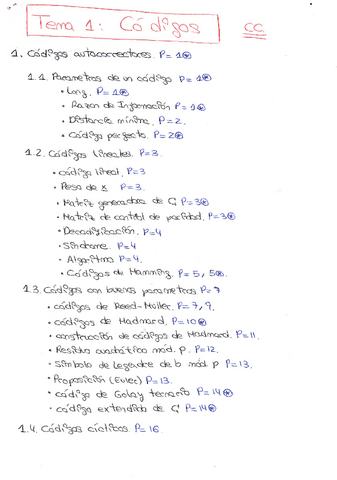 Tema 1: Códigos CC
1. Códigos autocorrectores. P= 1⊛
1.1. Parametros de un código P= 1⊛
• Long. P= 1⊛
• Razon de Información P= 1⊛
• Distancia mínima. P= 2.
• Código perfecto. P= 2⊛
1.2. Códigos lineales. P=3.
• código lineal, P=3
• Peso de x P=3.
• Matriz generadora de C, P=3⊛
• Matriz de control de paridad. P=3⊛
• Decodificación, P=4
• Síndrome. P=4
• Algoritmo P=4.
• Códigos de Hamming, P= 5, 5⊛.
1.3. Códigos con buenos parametros P= 7
• códigos de Reed-Müller. P= 7, 9.
• códigos de Hadmard. P= 10⊛
• construcción de códigos de Hadmard. P= 11.
• Residuo cuadrático mód. p. P= 12.
• Símbolo de Legendre de b mód p P= 13.
• Proposición (Euler) P= 13.
• código de Golay ternario P= 14⊛
• código extendido de C P= 14⊛
1.4. Códigos cíclicos P= 16.